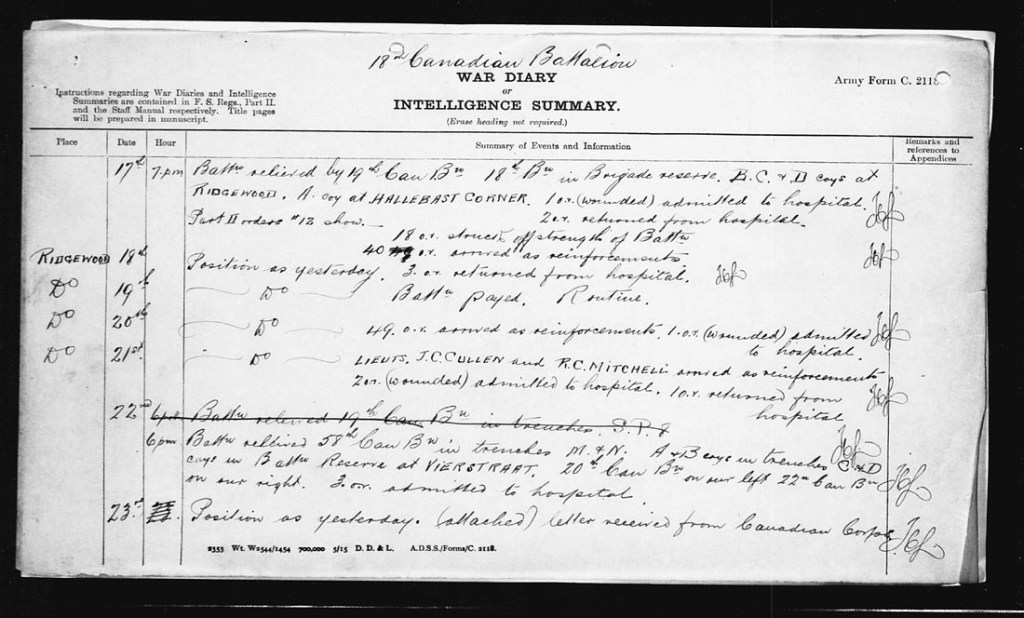 18th Canadian Battalion
WAR DIARY
or
INTELLIGENCE SUMMARY.
(Erase heading not required.)
Army Form C. 2118
Instructions regarding War Diaries and Intelligence
Summaries are contained in F. S. Regs., Part II.
and the Staff Manual respectively. Title pages
will be prepared in manuscript.
Place Date Hour Summary of Events and Information Remarks and references to Appendices
17th 7.pm Battn relieved by 19th Can Bn 18th Bn in Brigade reserve. B.C. & D coys at
RIDGEWOOD. A. coy at HALLEBAST CORNER. 1 o.r. (wounded) admitted to hospital.
Part II orders #12 show. 2 o.r. returned from hospital.
18 o.r. struck off strength of Battn
40 o.r. arrived as reinforcements
RIDGEWOOD 18th Position as yesterday. 3. o.r returned from hospital.
Do 19th Do Battn payed. Routine.
Do 20th Do 49. o.r. arrived as reinforcements. 1.o.r. (wounded) admitted
to hospital.
Do 21st Do LIEUTS. J.C. CULLEN and R.C. MITCHELL arrived as reinforcements
2 o.r. (wounded) admitted to hospital. 1 o.r. returned from
hospital
22nd 6pm Battn relieved 19th Can Bn in trenches.
6pm Battn relieved 58th Can Bn in trenches M. & N. A & B coys in trenches C & D
coys in Battn Reserve at VIERSTRAAT. 20th Can Bn on our left 22nd Can Bn
on our right. 3. o.r. admitted to hospital.
23rd Position as yesterday. (attached) letter received from Canadian Corps
2353 Wt. W2544/1454 700,000 5/15 D. D. & L. A.D.S.S./Forms/C. 2118.